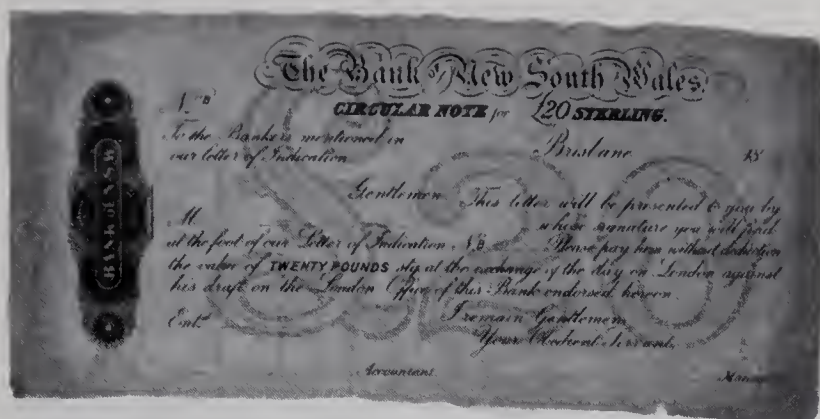 The Bank of New South Wales.
No. B
CIRCULAR NOTE for £20 STERLING.
To the Bankers mentioned in
our letter of Indication
Brisbane 18
Gentlemen, This letter will be presented to you by
M whose signature you will find
at the foot of our Letter of Indication No. B Please pay him without deduction
the value of TWENTY POUNDS stg at the exchange of the day on London against
his draft on the London Office of this Bank endorsed hereon.
I remain Gentlemen,
Entd. Your Obedient Servant,
Accountant. Manager
BANK of N.S.W
£20